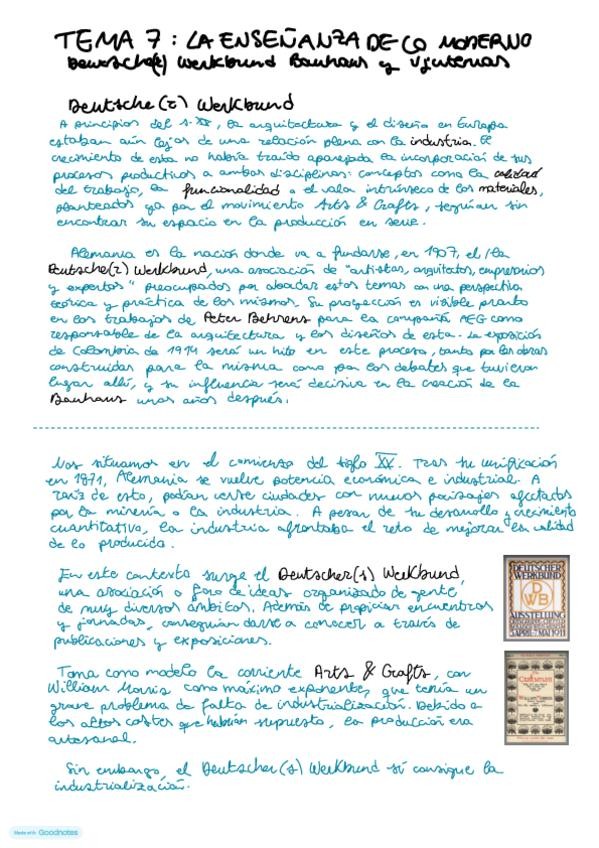 TEMA 7 : LA ENSEÑANZA DE LO MODERNO
Deutsche(r) Werkbund Bauhaus y Vjutemas
Deutsche(r) Werkbund
A principios del s. XX, la arquitectura y el diseño en Europa
estaban aún lejos de una relación plena con la industria. El
crecimiento de esta no había traído aparejada la incorporación de sus
procesos productivos a ambas disciplinas: conceptos como la calidad
del trabajo, la funcionalidad o el valor intrínseco de los materiales,
planteados ya por el movimiento Arts & Crafts, seguían sin
encontrar su espacio en la producción en serie.
Alemania es la nación donde va a fundarse, en 1907, el/la
Deutsche(r) Werkbund, una asociación de "artistas, arquitectos, empresarios
y expertos" preocupados por abordar estos temas con una perspectiva
teórica y práctica de los mismos. Su proyección es visible pronto
en los trabajos de Peter Behrens para la compañía AEG como
responsable de la arquitectura y los diseños de esta. La exposición
de Colonia de 1914 será un hito en este proceso, tanto por las obras
construidas para la misma como por los debates que tuvieron
lugar allí, y su influencia será decisiva en la creación de la
Bauhaus unos años después.
Nos situamos en el comienzo del siglo XX. Tras su unificación
en 1871, Alemania se vuelve potencia económica e industrial. A
raíz de esto, podían verse ciudades con nuevos paisajes afectados
por la minería o la industria. A pesar de su desarrollo y crecimiento
cuantitativo, la industria afrontaba el reto de mejorar la calidad
de lo producido.
En este contexto surge el Deutscher(s) Werkbund,
una asociación o foro de ideas organizado de gente
de muy diversos ámbitos. Además de propiciar encuentros
y jornadas, conseguían darse a conocer a través de
publicaciones y exposiciones.
DEUTSCHER
WERKBUND
DWB
AUSSTELLUNG
Toma como modelo la corriente Arts & Crafts, con
William Morris como máximo exponente, que tenía un
grave problema de falta de industrialización. Debido a
los altos costes que habían supuesto, la producción era
artesanal.
The
Craftsman
Sin embargo, el Deutscher(s) Werkbund sí consigue la
industrialización.
Made with Goodnotes